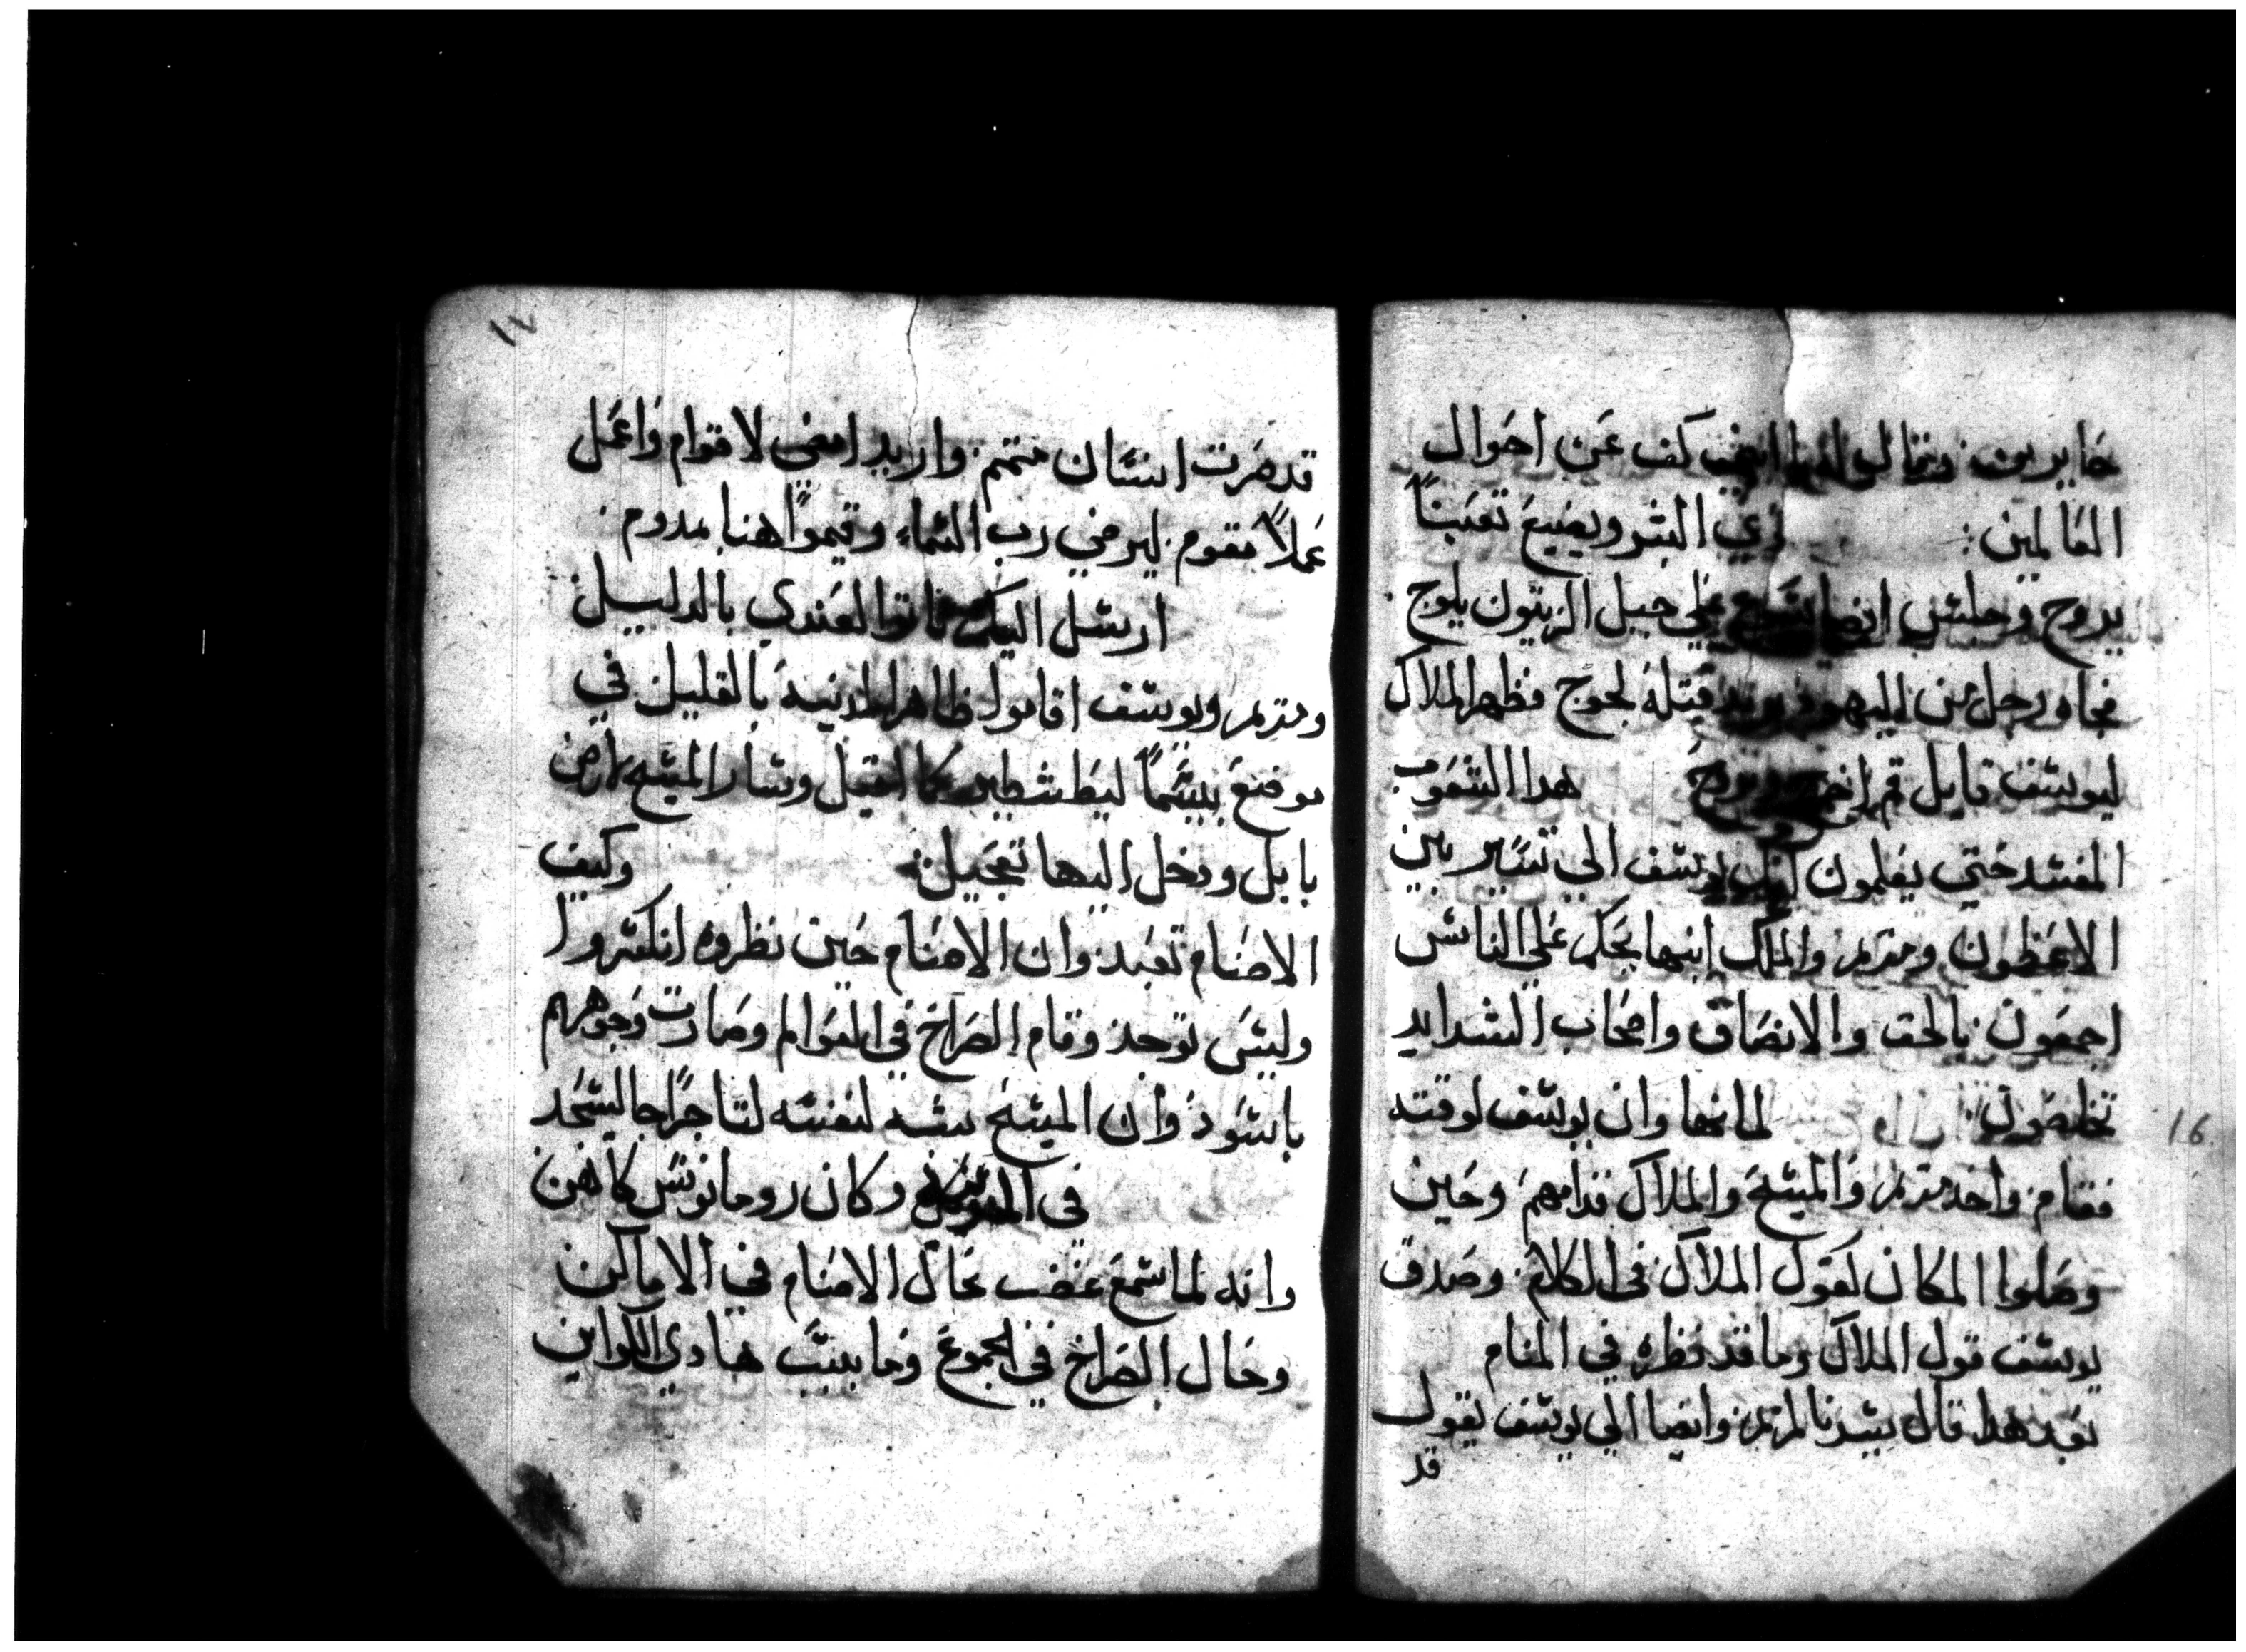 حايرين وقال لهما كف عن احوال
العالمين: راي البشر ويضيع تعبناً
يروح وجلس ايضا يشوع علي جبل الزيتون يلوح
فجاه رجل من اليهود يريد قتله لحوج فظهر الملاك
ليوسف قايل قم اخرج وروح هدا الشعوب
المفسد حتي يعلمون يوسف الي تسير بين
الاعظمون ومريم والملك ابنها يحكم علي الناس
اجمعون بالحق والانصاف واصحاب الشدايد
تخلصون لامها وان يوسف لوقته
فقام واخد مريم والمسيح والملاك قدامهم وحين
وصلوا المكان لقول الملاك في الكلام وصدق
يوسف قول الملاك وما قد نظره في المنام
بعد هدا قال سيدنا لمريم وايضا الي يوسف يقول
قد
16
١٧
قد صرت انسان متمم واريد امضي لاقوام واعمل
عملاً مقوم ليرضي رب السماء وقيموا هنا بدوم
ارسل اليكم فاتوا لعندي بالدليل
ومريم ويوسف اقاموا ظاهر المدينه بالقليل في
موضع يسما ليطشطير كما القيل وسار المسيح لارض
بابل ودخل اليها تعجيل: وكيف
الاصنام تعبد وان الاصنام حين نظروه انكسروا
وليس توجد وقام الصراخ في العوالم وصارت وجوههم
باسود وان المسيح شبه لنفسه لتاجر اجا ليسجد
في وكان رومانوس كاهن
وانه لما سمع غضب بحال الاصنام في الاماكن
وحال الصراخ في الجموع وما بينت هادي الكواين